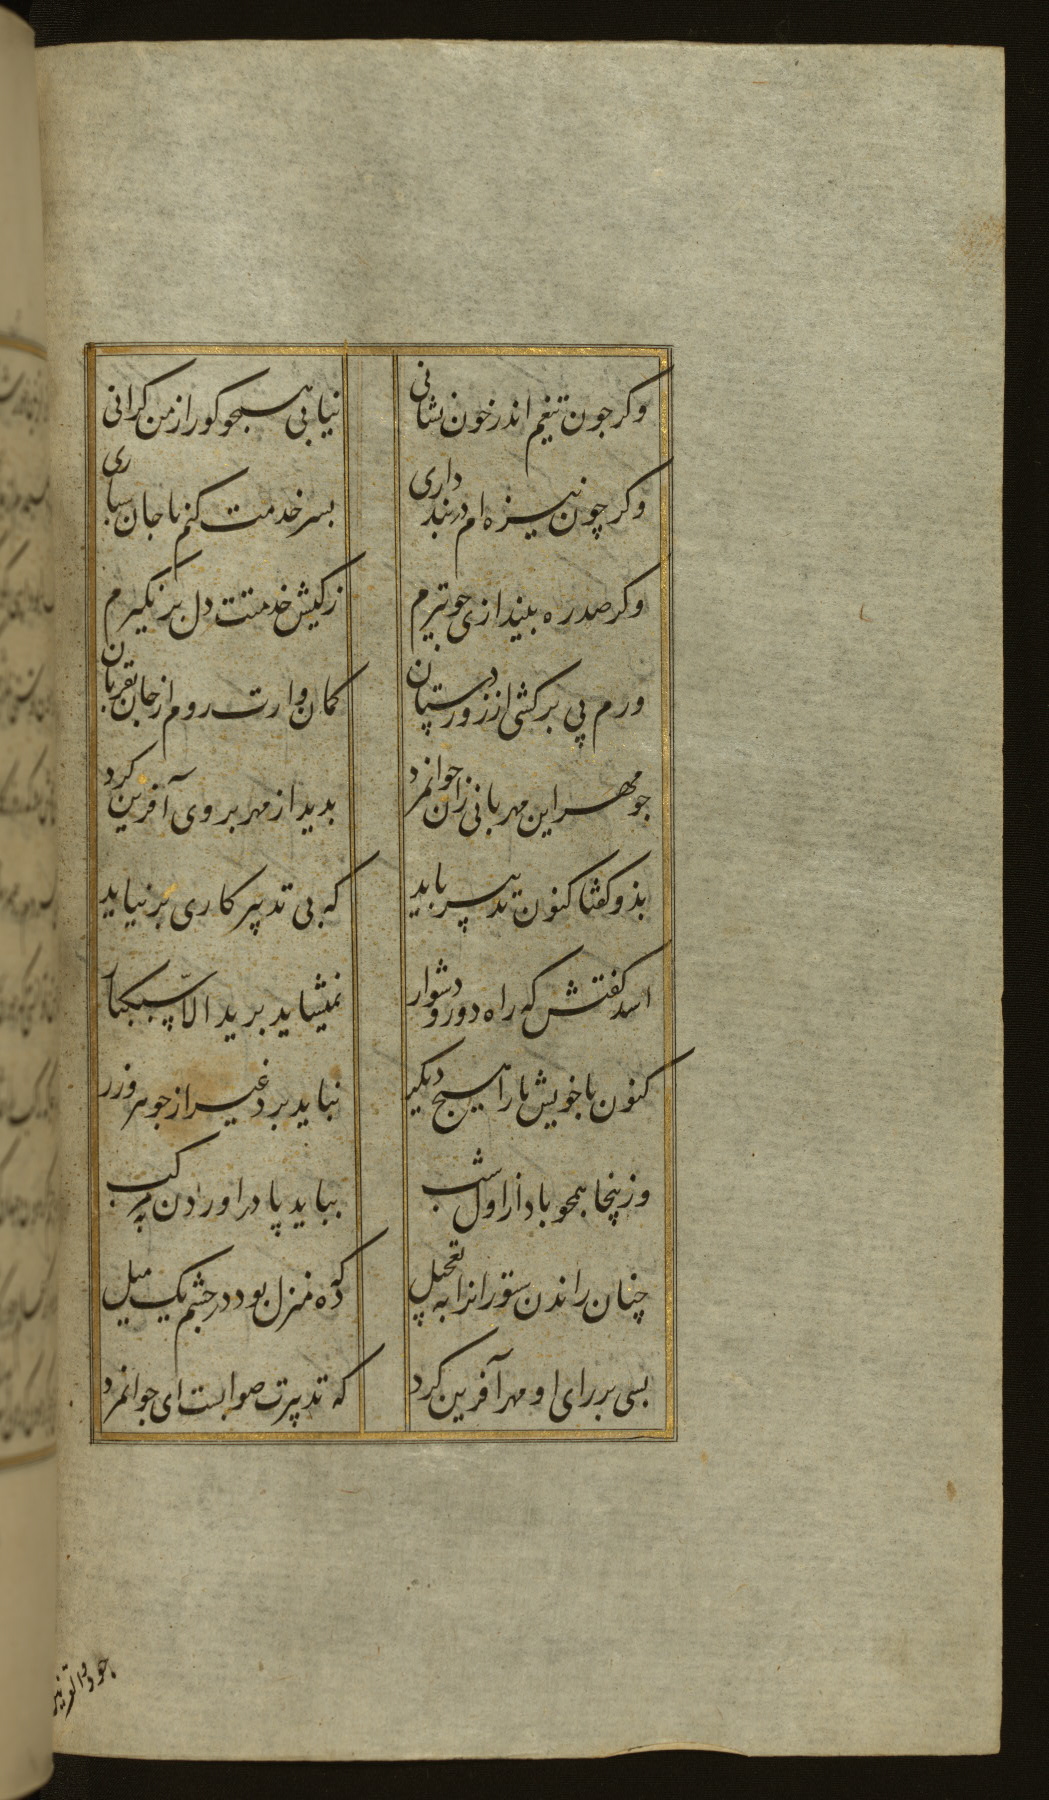 وکر جون تیغم اندر خون نشانی
نیابی هیچو کور از من کرانی
وکر چون نیزه ام دربند داری
بسر خدمت کنم تا جان سپاری
وکر صد ره بیندازی جو تیرم
زکیش خدمتت دل بر نکیرم
ورم پی برکشی از زور دستان
کمان وارت روم از جان بقربان
جو مهر این مهربانی زان جوانمرد
بدید از مهر بر وی آفرین کرد
بذو کفتا کنون تدبیر باید
که بی تدبیر کاری بر نیاید
اسد کفتش که راه دور و دشوار
نمیشاید برید الا سبکبار
کنون با خویش ما را هیچ دیکر
نباید برد غیر از جوهر و زر
وزینجا همجو باد از اول شب
بباید پا در اوردن به مرکب
چنان راندن ستورانرا به تعجیل
که ده منزل بود در جشم یک میل
بسی بر رای او مهر آفرین کرد
که تدبیرت صوابست ای جوانمرد